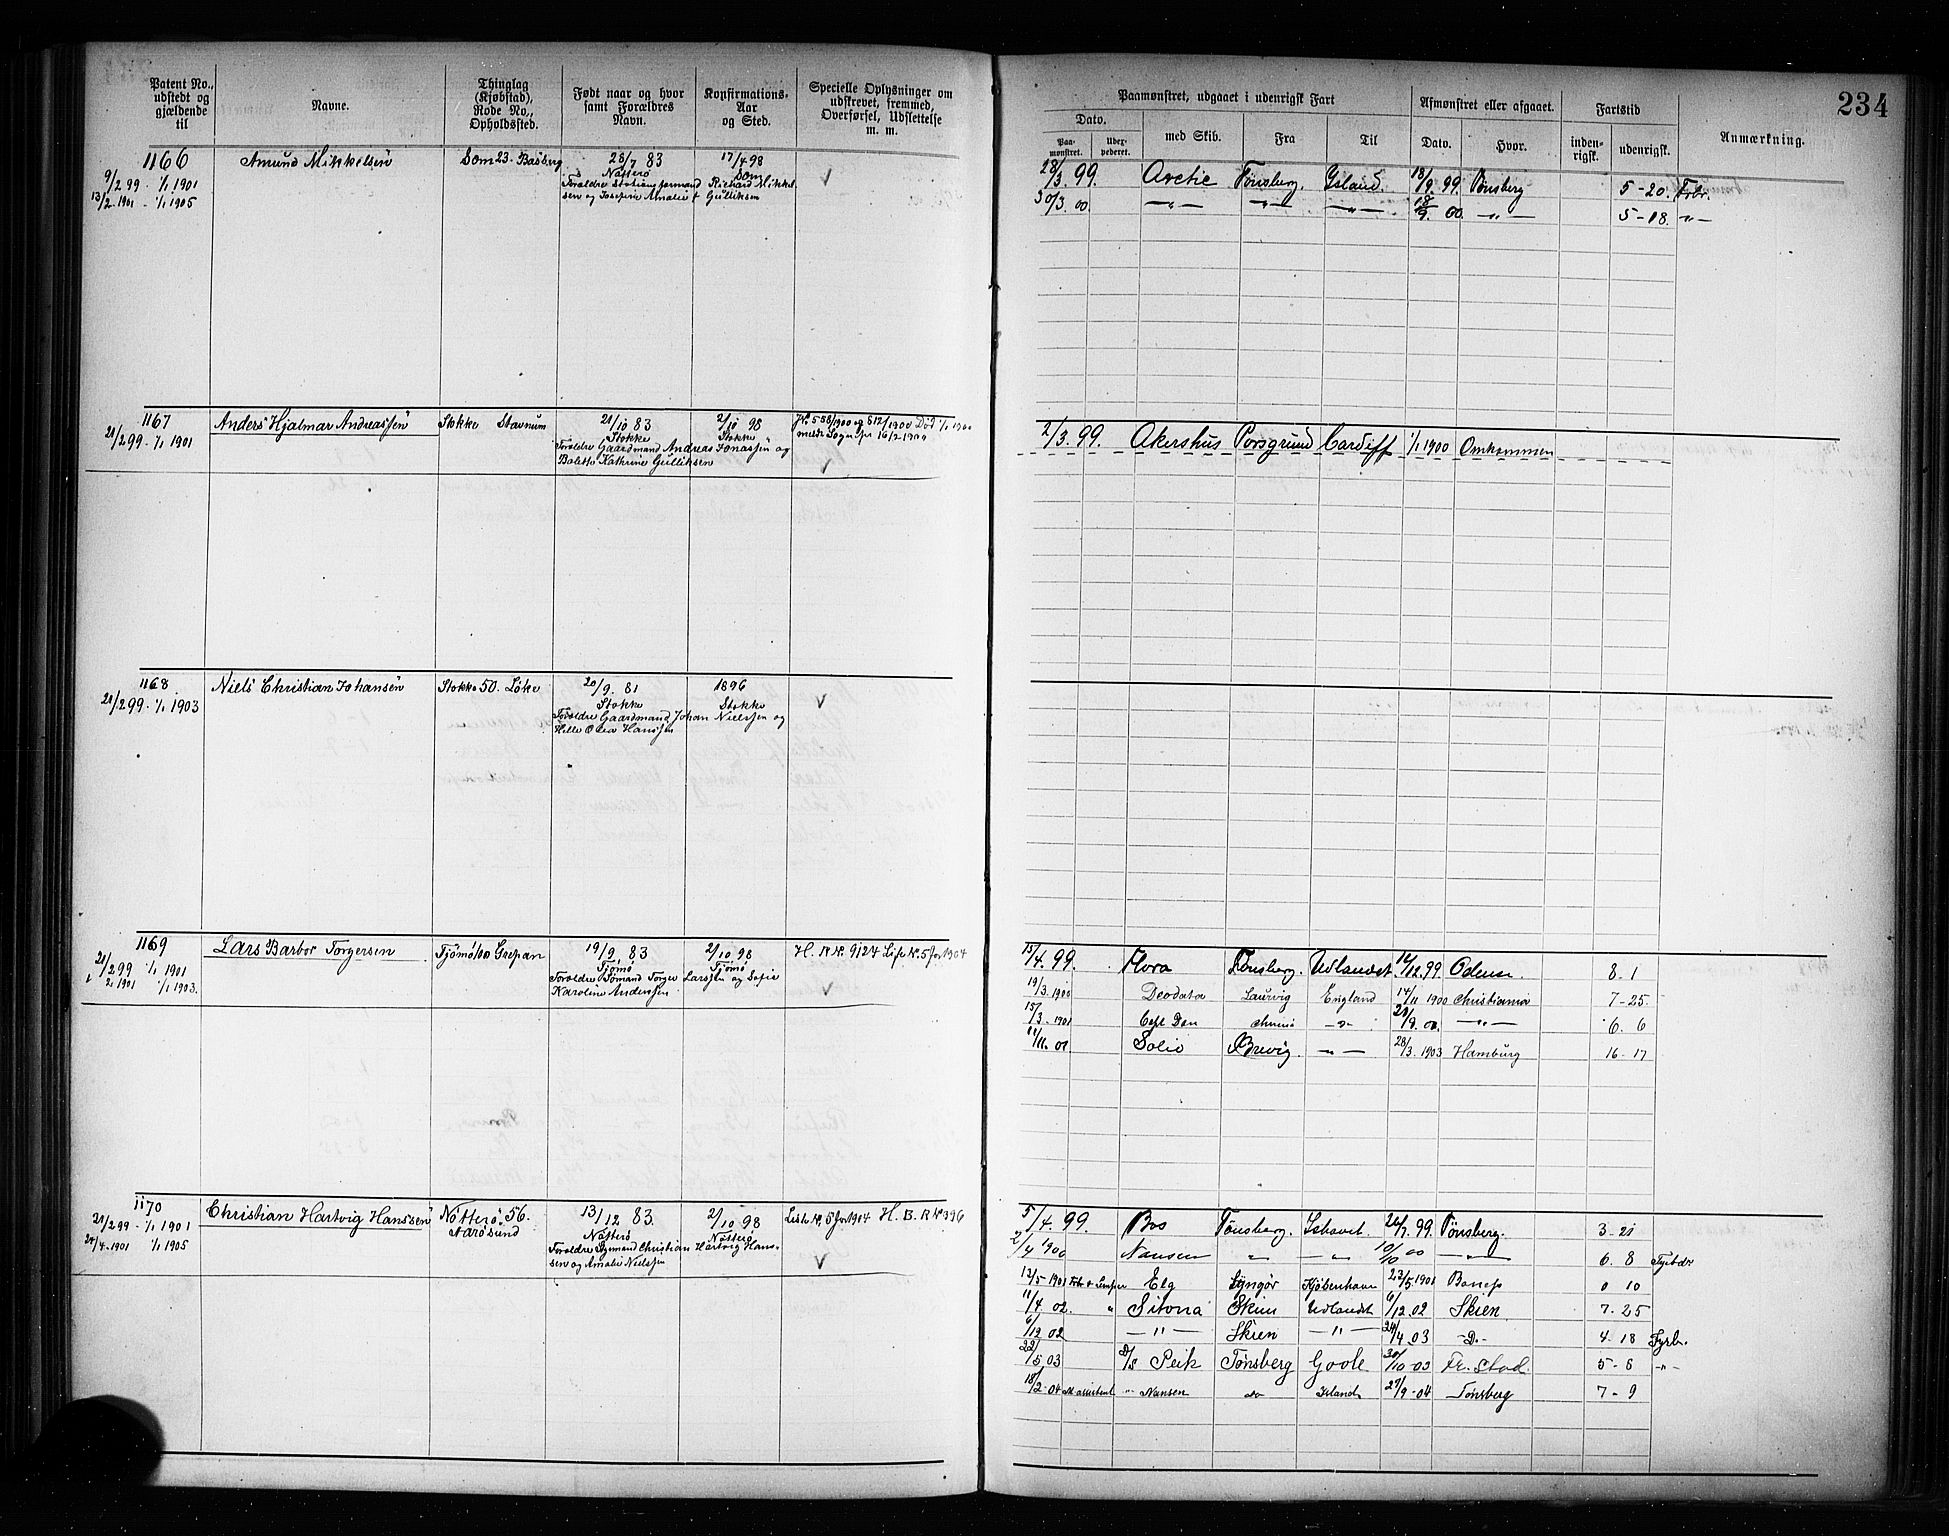 234
Patent No., udstedt og gjældende til
Navne.
Thinglag (Kjøbstad), Rode No., Opholdssted.
Født naar og hvor samt Forældres Navn.
Konfirmations-Aar og Sted.
Specielle Oplysninger om udskrevet, fremmed, Overførsel, Udslettelse m. m.
Paamønstret, udgaaet i udenrigsk Fart
Dato.
Paamønstret.
med Skib.
Fra
Til
Afmønstret eller afgaaet.
Dato.
Hvor.
Fartstid
indenrigsk.
udenrigsk.
Anmærkning.
1166
9/2 99 - 1/1 1901
13/2 1901 - 1/1 1905
Amund Mikkelsen
Sem 23. Basberg
28/7 83
Nøtterø
Forældre Styrmand
17/4 98
Sem
Richard Mikkel
sen og Josefine Amalie f Gulliksen
28/3. 99. Arctic Tønsberg. Island 18/9. 99. Tønsberg 5-20. Fyrb.
30/3. 00. —"— —"— —"— 18/9. 00. —"— 5-18. —"—
1167
21/2 99 - 1/1 1901
Anders Hjalmar Andreassen
Stokke Stavnum
21/10 83
Stokke
Forældre Gaardmand Andreas Jonassen og
Bolette Kathrine Gulliksen
2/10 98
Stokke
J.No. 558/1900 og 612/1900 Død 1/1 1900
meldt Sogne Spr 16/2 1900
2/3. 99. Akershus Porsgrund Cardiff 1/1 1900 Omkommen
1168
21/2 99 - 1/1 1903
Niels Christian Johansen
Stokke 50. Løke
20/9. 81
Stokke
Forældre Gaardmand Johan Nielssen og
Helle Olea Hanssen
1896
Stokke
1169
21/2 99 1/1 1901
1901 1/1 1903.
Lars Barbor Torgersen
Tjømø 100 Grepan
19/9. 83
Tjømø
Forældre Sømand Torger Larssen og Sofie
Karoline Anderssen
2/10 98
Tjømø
H. R. No. 9127 Liste No. 5 for 1904
15/4. 99. Flora Tønsberg. Udlandet 12/12 99. Odense. 8. 1
19/3. 1900 Deodata Laurvig England 14/11 1900 Christiania 7-25.
15/3. 1901 Capt Dan —"— —"— 6. 6
11/11. 01 Solid Brevig. —"— 28/3. 1903 Hamburg 16-17
1170
21/2 99 - 1/1 1901
24/4. 1901 1/1 1905
Christian Hartvig Hanssen
Nøtterø. 56.
Aarøsund
13/12 83.
Nøtterø
Forældre Sømand Christian Hartvig Hans-
sen og Amalie Nielssen
2/10 98
Nøtterø
Liste No. 5 for 1904 H. B. R No 396
5/4. 99. Bos Tønsberg. Ishavet 26/7. 99. Tønsberg. 3-21
2/4 1900 Nansen " —"— 10/10 00 —"— 6. 8
12/5 1901 Elg Lyngør Kjøbenhavn 23/5 1901 0 10
11/4 02. " Sitona Skien Udlandet 6/12 02 Skien 7-25
6/12 02 —"— Skien —"— 24/4. 03 -Do- 4-18 Fyrb.
22/5 03 D/S Peik Tønsberg Goole 30/10-03 Fr. stad. 5-6 -"-
18/2-04 M.assistent " Nansen do Island 27/9-04 Tønsberg 7-9